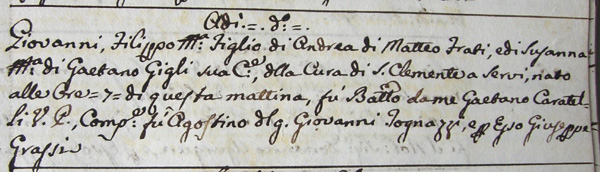 Adi. = . do. = .
Giovanni, Filippo Ma. Figlio di Andrea di Matteo Frati, e di Susanna
Ma. di Gaetano Gigli sua Ce., dlla Cura di S. Clemente a Servi, nato
alle Ore = 7 = di questa mattina, fù Batto. da me Gaetano Caratel-
li V. P., Compe. fù Agostino dlq. Giovanni Tognazzi, e p Esso Giuseppe
Grassi